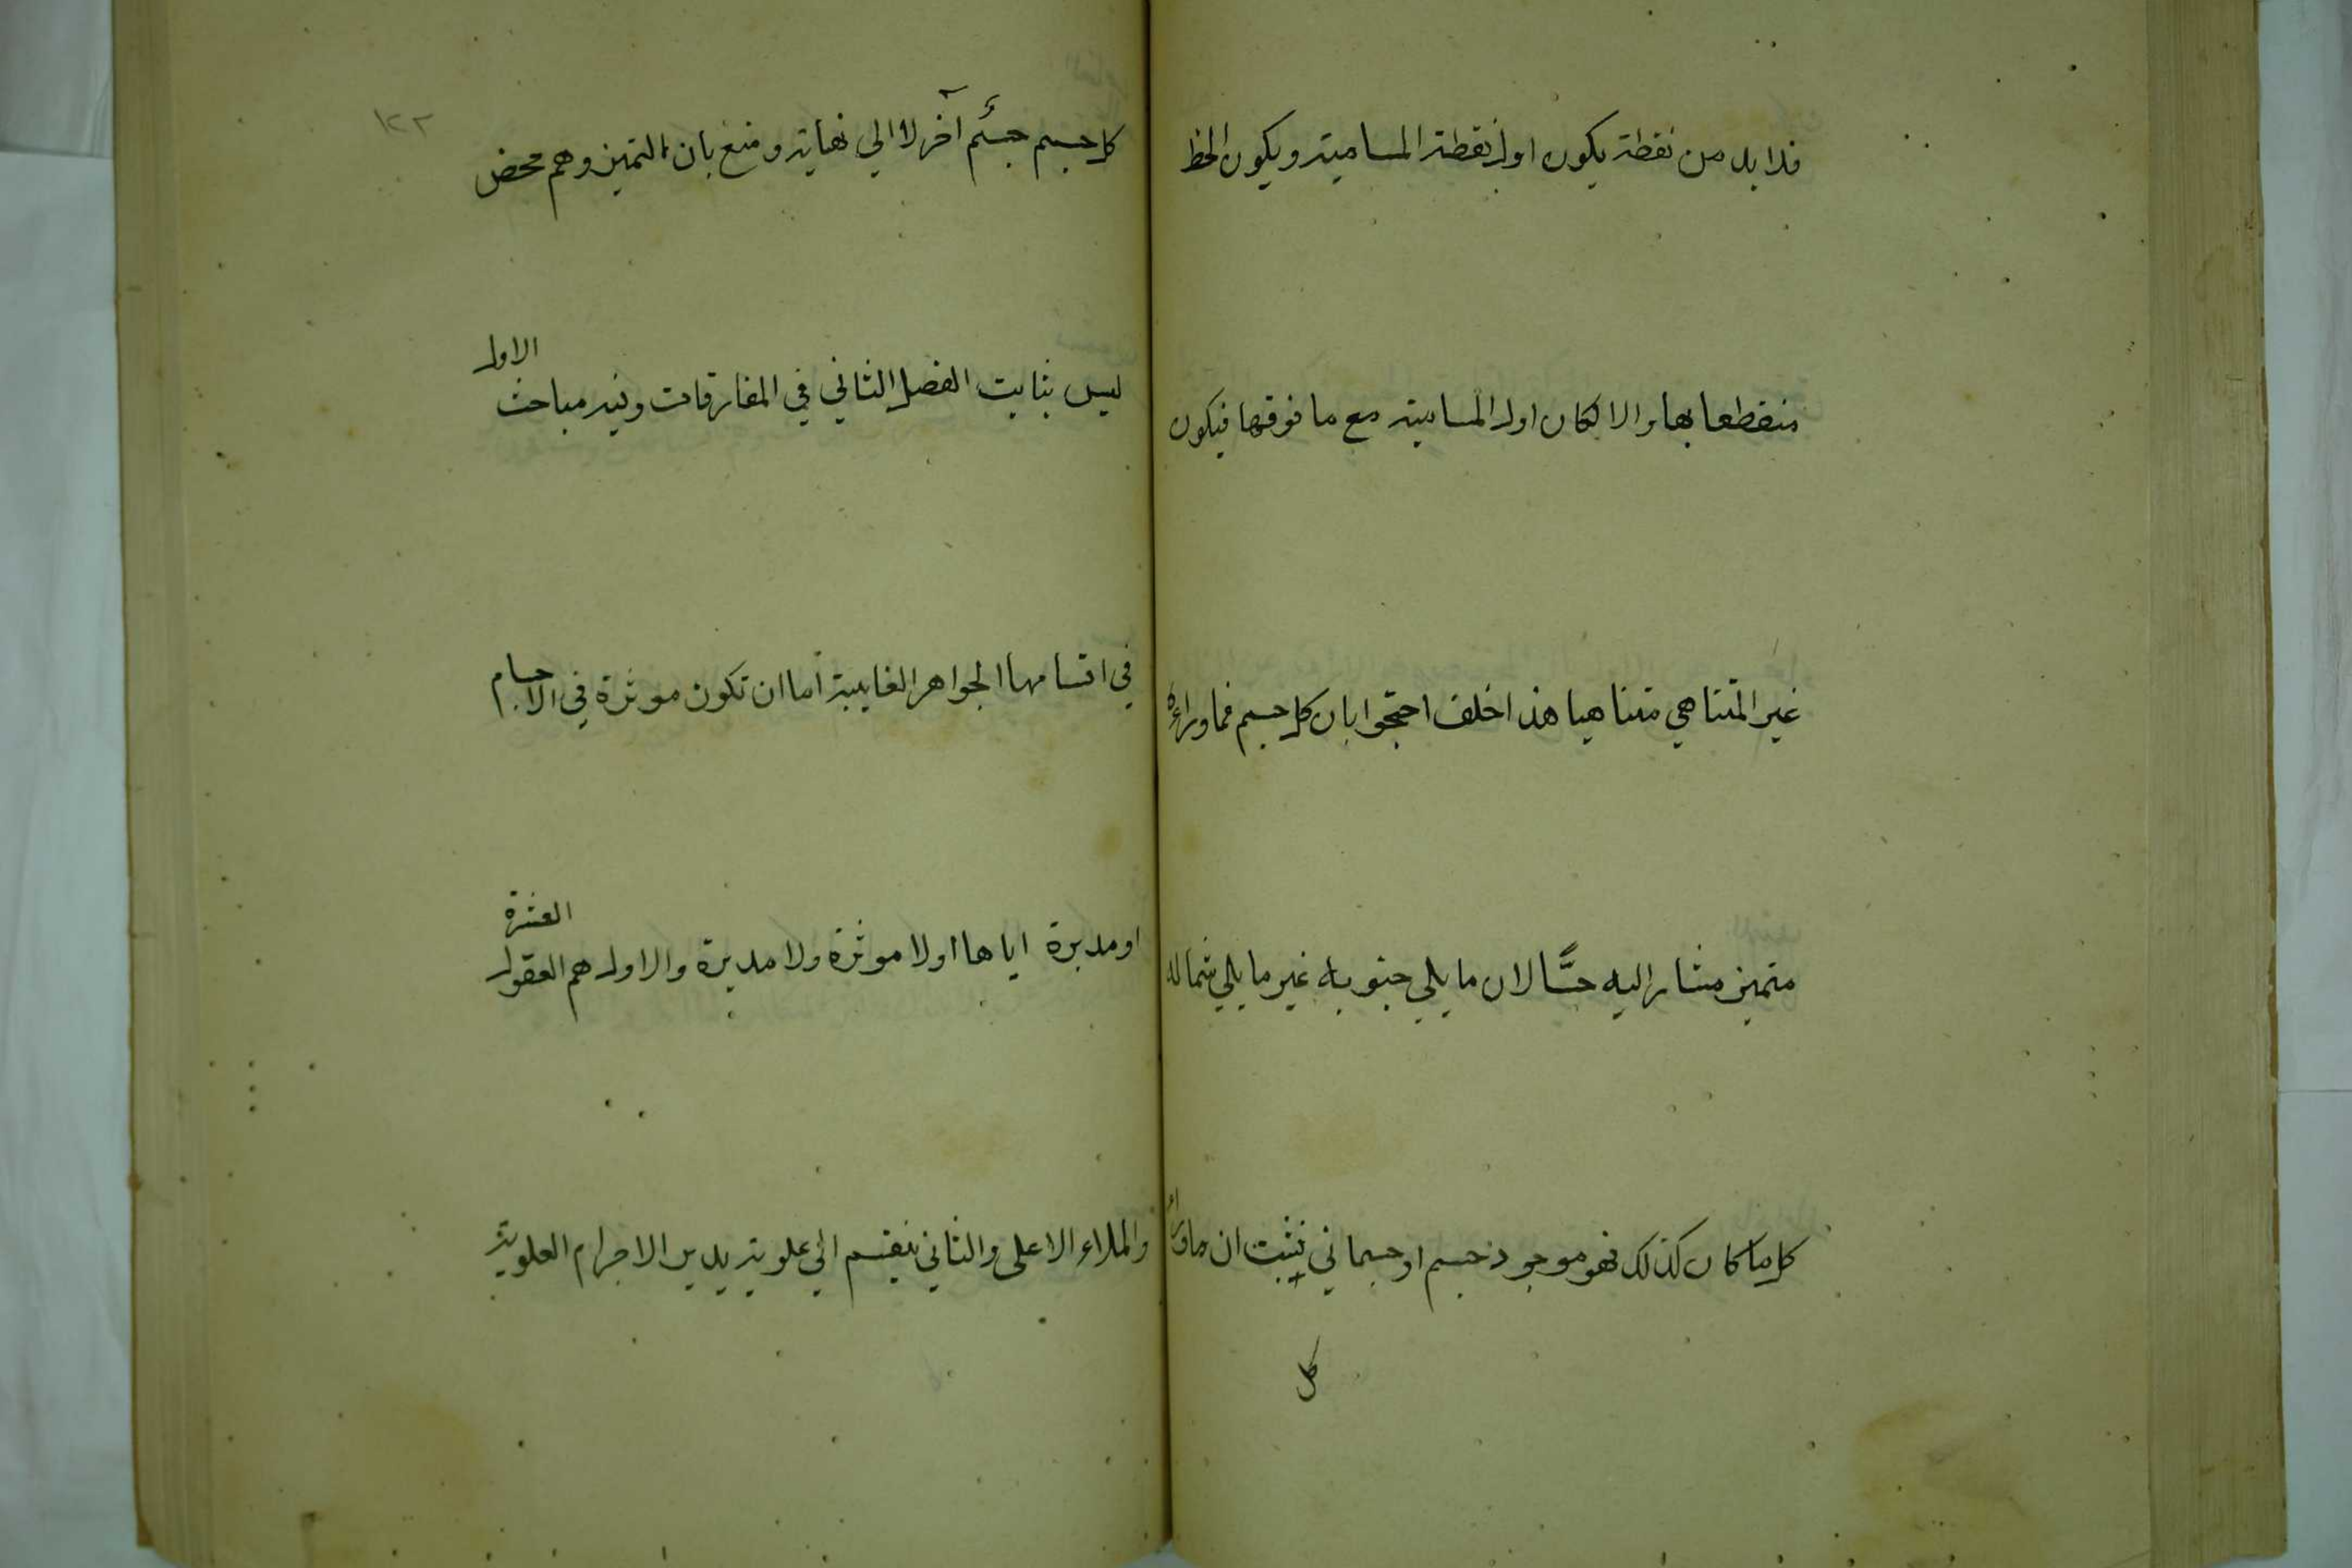 فلا بد من نقطة يكون اول نقطة المسامتة ويكون الخط
منقطعا بها والا لكان اول المسامتة مع ما فوقها فيكون
غير المتناهي متناهيا هذا خلف احتجوا بان كل جسم فما وراءه
متميز مشار اليه حسًّا لان ما يلي جنوبه غير ما يلي شماله
كل ما كان كذلك فهو موجود جسم او جسماني فيثبت ان ما وراء
كل
١٢٢
كل جسم جسم آخر لا الى نهاية ومنع بان التميز وهم محض
ليس بثابت الفصل الثاني في المفارقات وفيه مباحث الاول
في اقسامها الجواهر الغايبة اما ان تكون موثرة في الاجسام
او مدبرة اياها اولا موثرة ولا مدبرة والاول هم العقول العشرة
والملاء الاعلى والثاني ينقسم الى علوية يدبر الاجرام العلوية